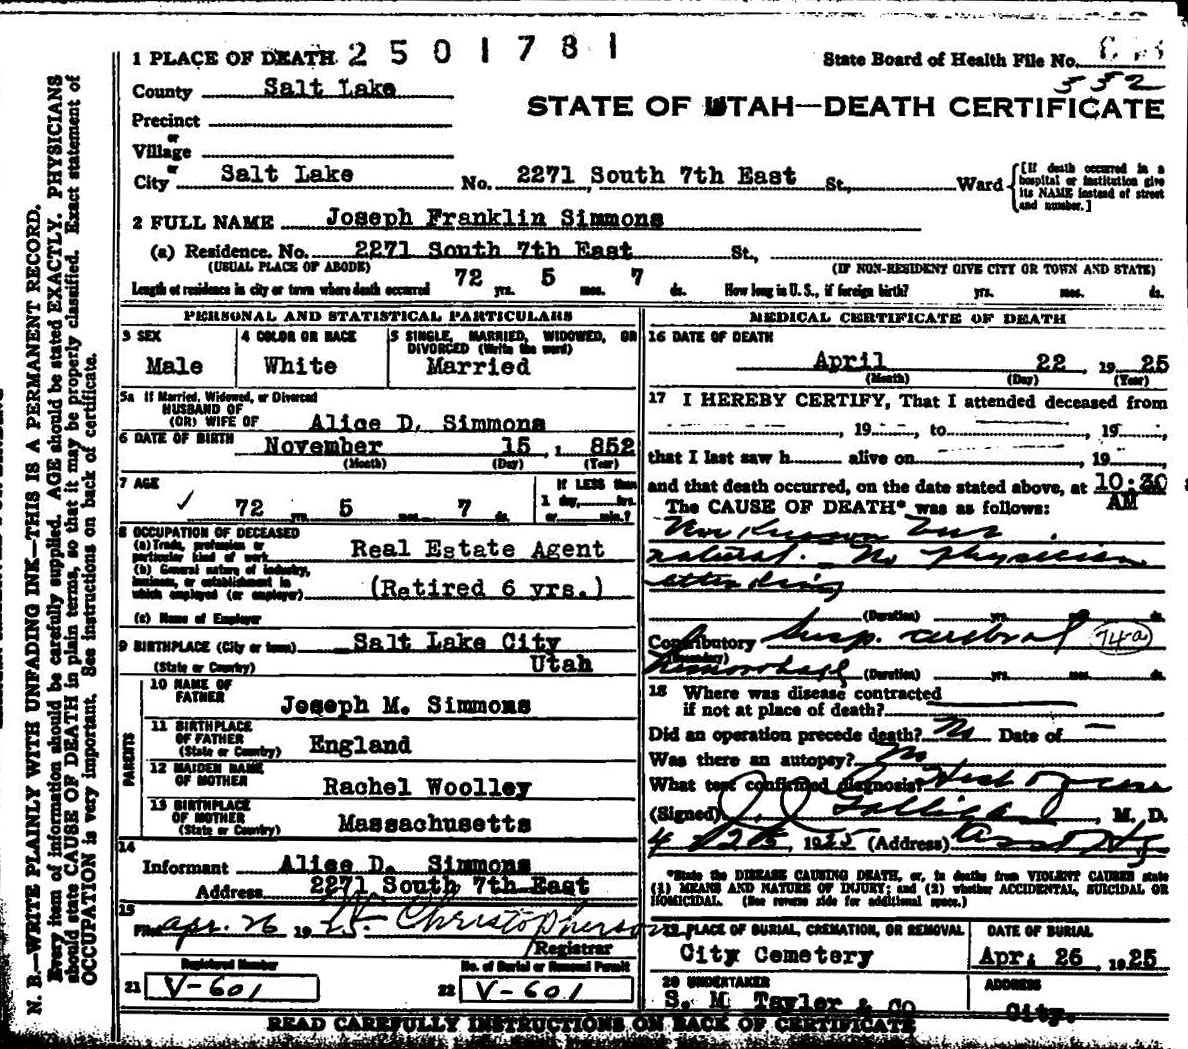 1 PLACE OF DEATH 2 5 0 1 7 8 1
State Board of Health File No.
552
County Salt Lake
STATE OF UTAH—DEATH CERTIFICATE
Precinct
or
Village
or
City Salt Lake No. 2271 South 7th East St., Ward
[If death occurred in a
hospital or institution give
its NAME instead of street
and number.]
2 FULL NAME Joseph Franklin Simmons
(a) Residence. No. 2271 South 7th East St.,
(USUAL PLACE OF ABODE) (IF NON-RESIDENT GIVE CITY OR TOWN AND STATE)
Length of residence in city or town where death occurred 72 yrs. 5 mos. 7 ds. How long in U. S., if foreign birth? yrs. mos. ds.
PERSONAL AND STATISTICAL PARTICULARS
3 SEX
Male
4 COLOR OR RACE
White
5 SINGLE, MARRIED, WIDOWED, OR
DIVORCED (Write the word)
Married
5a If Married, Widowed, or Divorced
HUSBAND OF
(OR) WIFE OF Alice D. Simmons
6 DATE OF BIRTH November 15, 1852
(Month) (Day) (Year)
7 AGE
72 yrs. 5 mos. 7 ds.
If LESS than
1 day, hrs.
or min.?
8 OCCUPATION OF DECEASED
(a) Trade, profession or
particular kind of work Real Estate Agent
(b) General nature of industry,
business, or establishment in
which employed (or employer) (Retired 6 yrs.)
(c) Name of Employer
9 BIRTHPLACE (City or town) Salt Lake City
(State or Country) Utah
PARENTS
10 NAME OF
FATHER Joseph M. Simmons
11 BIRTHPLACE
OF FATHER
(State or Country) England
12 MAIDEN NAME
OF MOTHER Rachel Woolley
13 BIRTHPLACE
OF MOTHER
(State or Country) Massachusetts
14
Informant Alice D. Simmons
Address 2271 South 7th East
15
Filed Apr. 26 1925. Christopherson
Registrar
Registered Number
21 V-601
No. of Burial or Removal Permit
22 V-601
MEDICAL CERTIFICATE OF DEATH
16 DATE OF DEATH
April 22, 1925
(Month) (Day) (Year)
17 I HEREBY CERTIFY, That I attended deceased from
, 19 , to , 19 ,
that I last saw h alive on , 19
and that death occurred, on the date stated above, at 10:30
AM
The CAUSE OF DEATH* was as follows:
natural. No physician
attending
(Duration) yrs. ds.
Contributory Susp. cerebral 74a
hemorrhage (Duration) yrs. mos. ds.
18 Where was disease contracted
if not at place of death?
Did an operation precede death? No Date of —
Was there an autopsy? No
What test confirmed diagnosis?
(Signed) , M. D.
4/25, 1925 (Address)
*State the DISEASE CAUSING DEATH, or, in deaths from VIOLENT CAUSES state
(1) MEANS AND NATURE OF INJURY; and (2) whether ACCIDENTAL, SUICIDAL OR
HOMICIDAL. (See reverse side for additional space.)
PLACE OF BURIAL, CREMATION, OR REMOVAL
City Cemetery
DATE OF BURIAL
Apr. 26, 1925
20 UNDERTAKER
S. M Tayler & Co
ADDRESS
City.
READ CAREFULLY INSTRUCTIONS ON BACK OF CERTIFICATE
N. B.—WRITE PLAINLY WITH UNFADING INK—THIS IS A PERMANENT RECORD.
Every item of information should be carefully supplied. AGE should be stated EXACTLY. PHYSICIANS
should state CAUSE OF DEATH in plain terms, so that it may be properly classified. Exact statement of
OCCUPATION is very important. See instructions on back of certificate.